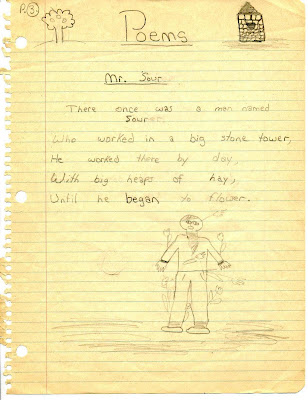 P. 3
Poems
Mr. Sour
There once was a man named
Sour
Who worked in a big stone tower,
He worked there by day,
With big heaps of hay,
Until he began to flower.